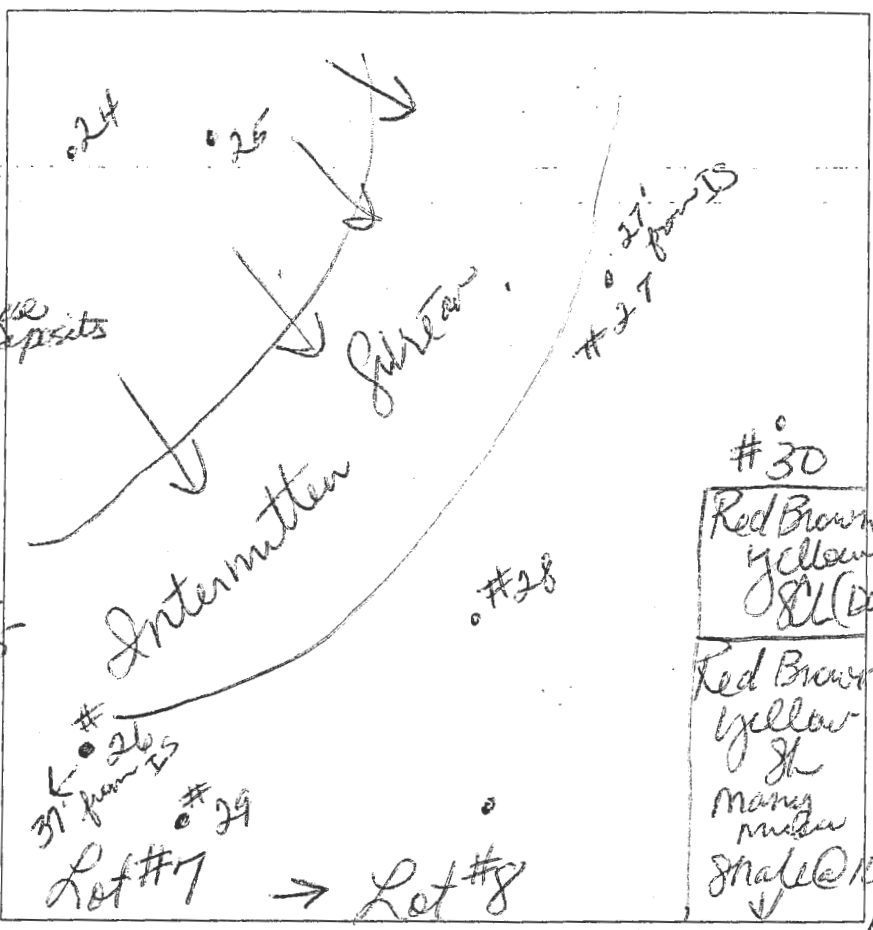 24
25
27' from IS
#27
deposits
Intermitten Stream
#30
Red Brown
yellow
SCL (D
Red Brown
yellow
SL
many
Shale @ 1
#28
#26
37' from IS
#29
Lot #7 → Lot #8